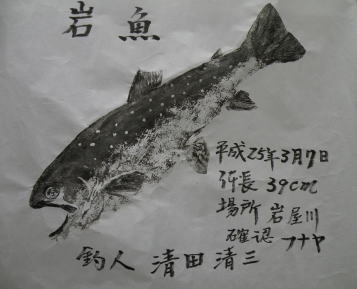 岩魚
平成25年3月7日
体長 39cm
場所 岩屋川
確認 フナヤ
釣人 清田清三